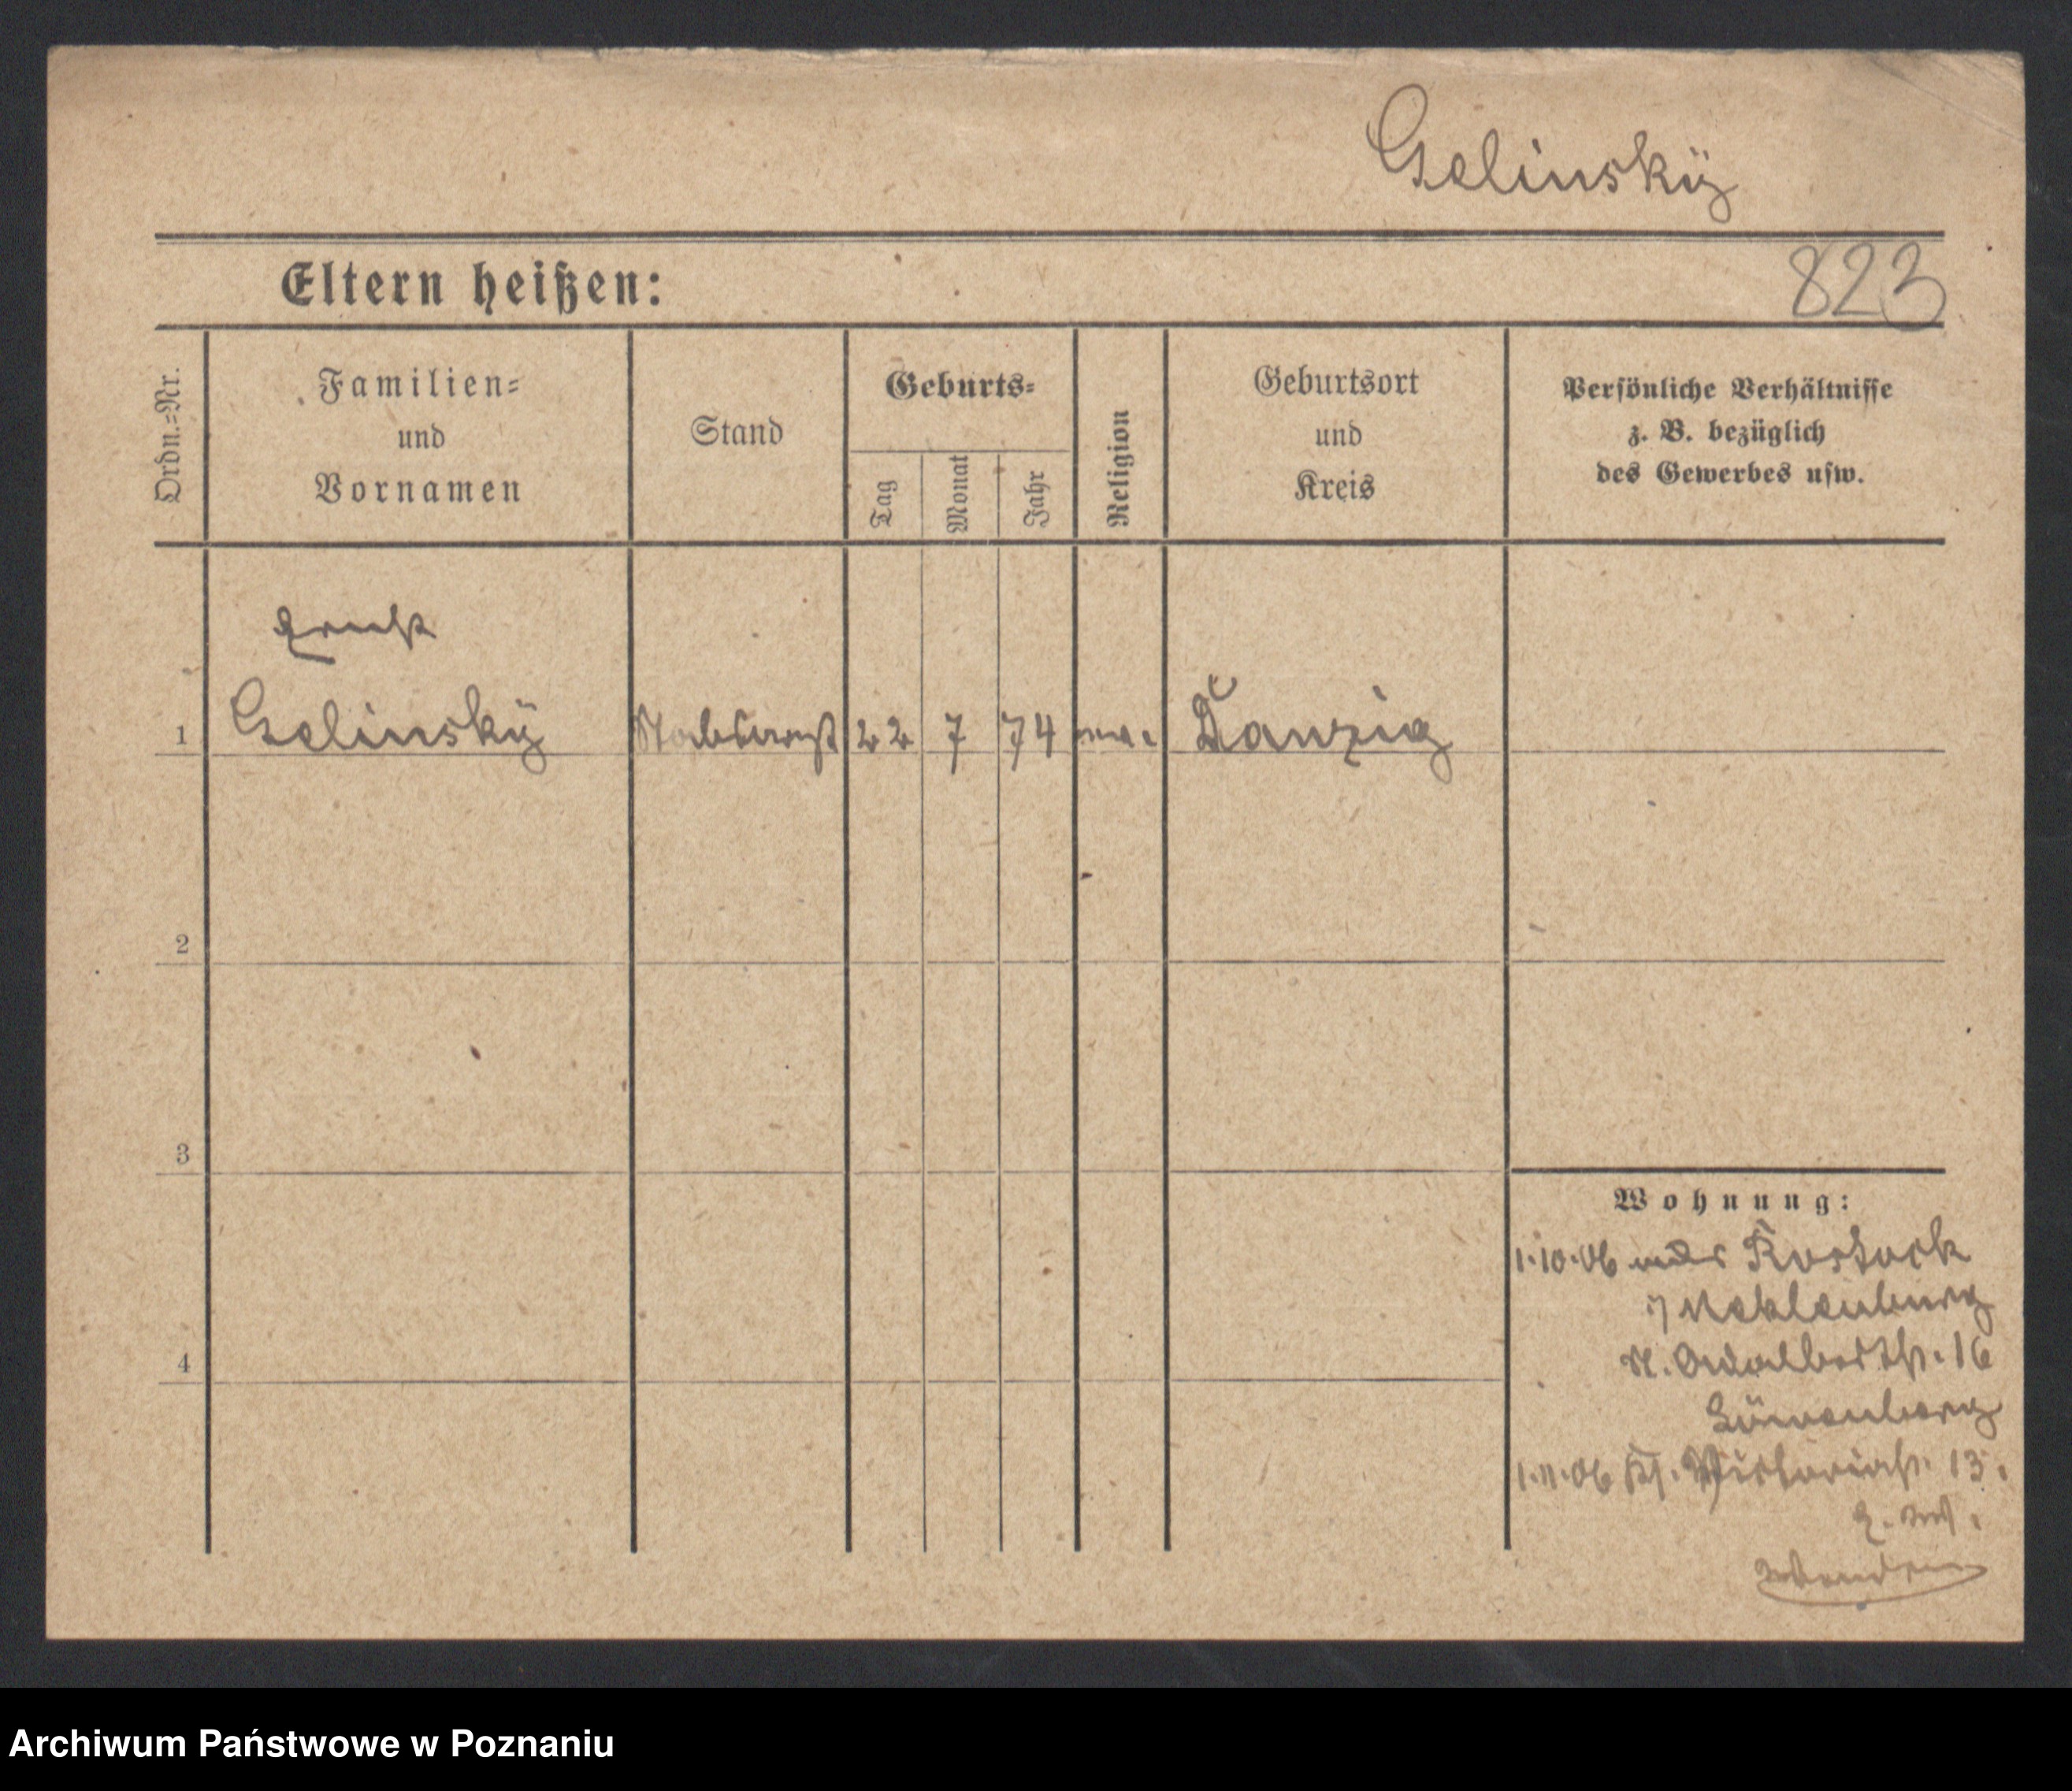 Gelinskÿ
Eltern heißen:
823
Ordn.=Nr.
Familien=
und
Vornamen
Stand
Geburts=
Tag
Monat
Jahr
Religion
Geburtsort
und
Kreis
Persönliche Verhältnisse
z. B. bezüglich
des Gewerbes usw.
Ernst
1 Gelinskÿ Stabsarzt 22 7 74 Danzig
2
3
4
Wohnung:
1.10.06 Rostock
Meklenburg
16
1.11.06 Victoriastr. 13.
Archiwum Państwowe w Poznaniu